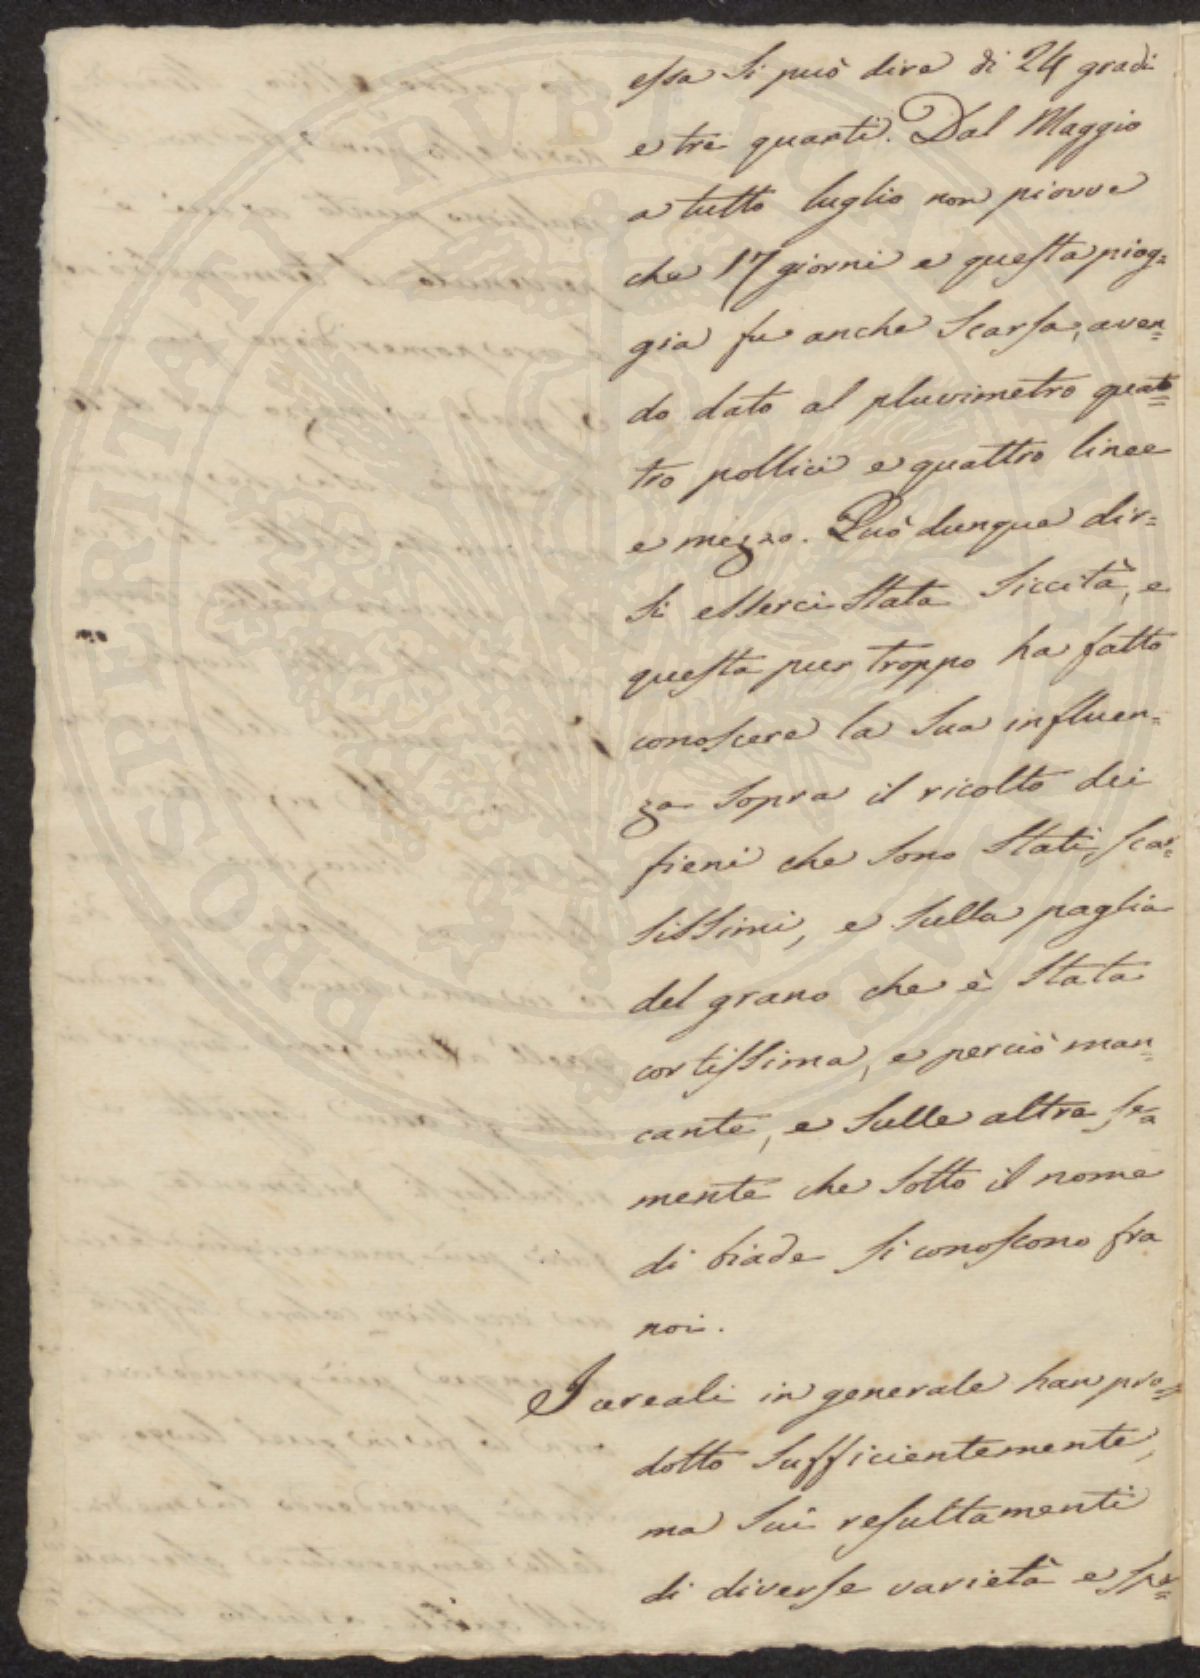 essa si può dire di 24 gradi
e tre quarti. Dal Maggio
a tutto luglio non piovve
che 17 giorni e questa piog=
gia fu anche scarsa, aven=
do dato al pluvimetro quat=
tro pollici e quattro linee
e mezzo. Può dunque dir=
si esserci stata siccità, e
questa pur troppo ha fatto
conoscere la sua influen=
za sopra il ricolto dei
fieni che sono stati, scar=
sissimi, e sulla paglia
del grano che è stata
cortissima, e perciò man=
cante, e sulle altre, se=
mente che sotto il nome
di biade si conoscono fra
noi.
I cereali in generale han pro=
dotto sufficientemente,
ma sui resultamenti
di diverse varietà e spe=
PROSPERITATI PUBLICAE AUGENDAE